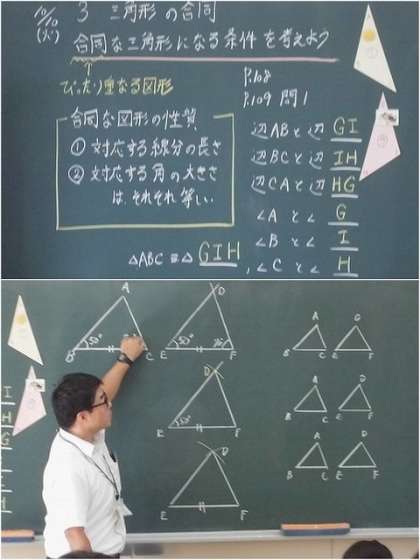 10/10
(火)
3 三角形の合同
合同な三角形になる条件を考えよう
ぴったり重なる図形
P.108
P.109 問1
合同な図形の性質
① 対応する線分の長さ
② 対応する角の大きさ
は、それぞれ等しい。
辺ABと辺 GI
辺BCと辺 IH
辺CAと辺 HG
∠Aと∠ G
∠Bと∠ I
∠Cと∠ H
△ABC≡△GIH
I
H
G
A
B
C
50°
D
E
F
50°
70°
D
E
F
50°
D
E
F
A
B
C
D
E
F
A
B
C
D
E
F
A
B
C
D
E
F